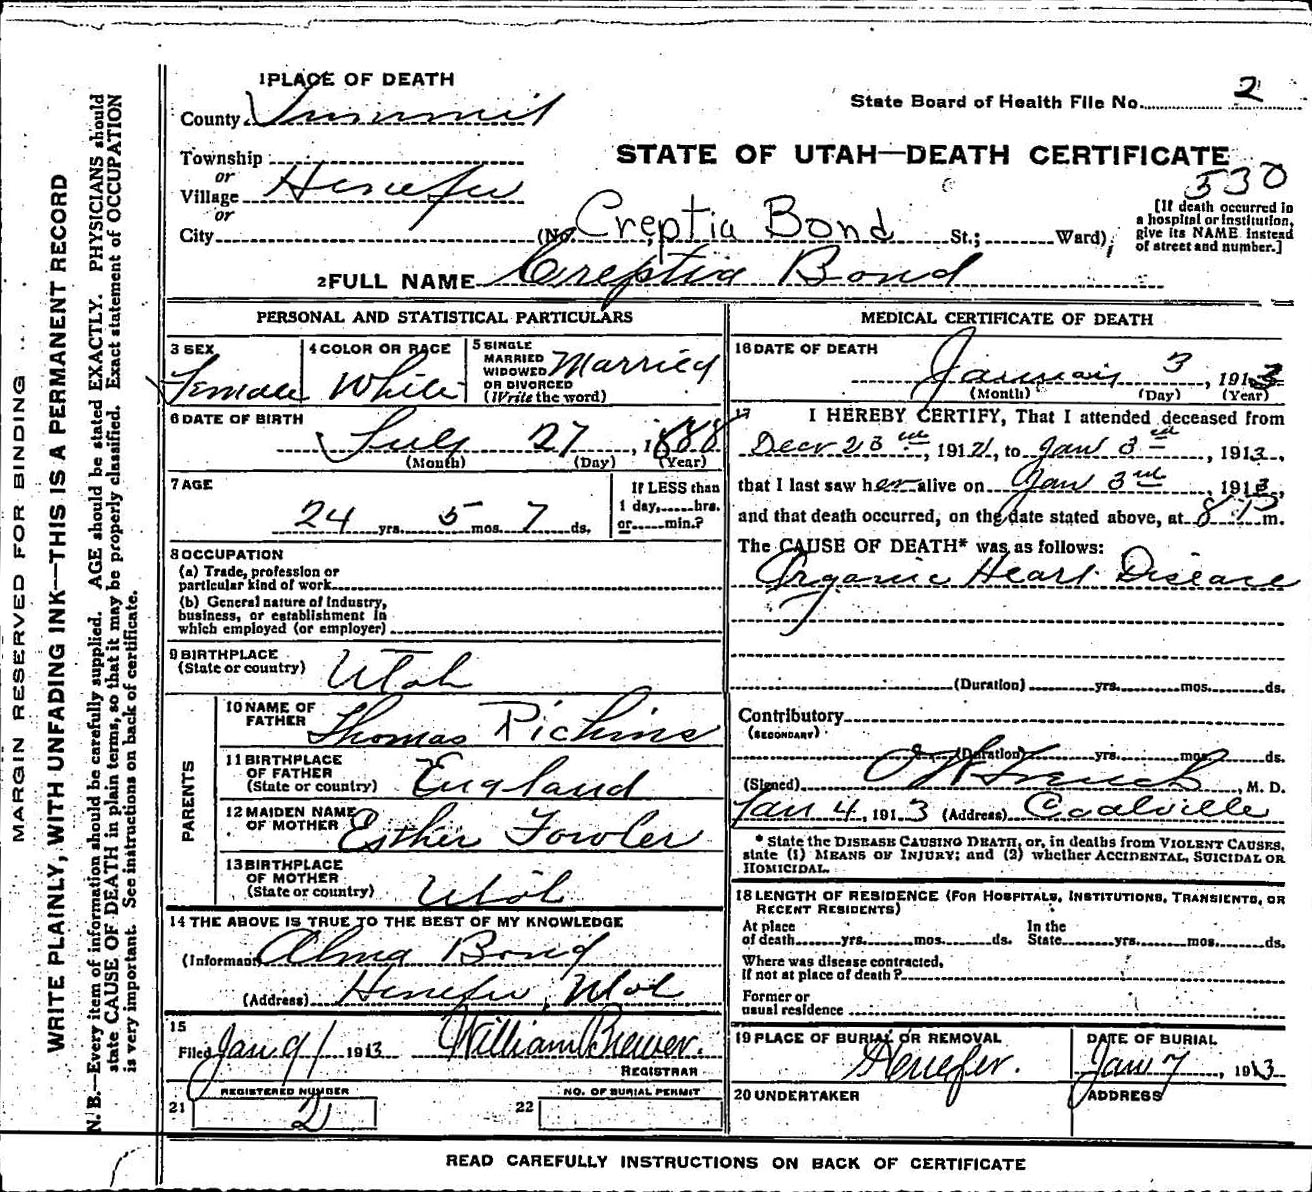 MARGIN RESERVED FOR BINDING
WRITE PLAINLY, WITH UNFADING INK—THIS IS A PERMANENT RECORD
N. B.—Every item of information should be carefully supplied. AGE should be stated EXACTLY. PHYSICIANS should
state CAUSE OF DEATH in plain terms, so that it may be properly classified. Exact statement of OCCUPATION
is very important. See instructions on back of certificate.
1 PLACE OF DEATH
State Board of Health File No. 2
County Summit
STATE OF UTAH—DEATH CERTIFICATE
530
Township
or
Village Henefer
or
City (No. Creptia Bond St.; Ward)
[If death occurred in
a hospital or institution,
give its NAME instead
of street and number.]
2 FULL NAME Creptia Bond
PERSONAL AND STATISTICAL PARTICULARS
3 SEX
Female
4 COLOR OR RACE
White
5 SINGLE
MARRIED
WIDOWED
OR DIVORCED
(Write the word)
Married
6 DATE OF BIRTH
July 27, 1888
(Month) (Day) (Year)
7 AGE
24 yrs. 5 mos. 7 ds.
If LESS than
1 day, hrs.
or min.?
8 OCCUPATION
(a) Trade, profession or
particular kind of work
(b) General nature of Industry,
business, or establishment in
which employed (or employer)
9 BIRTHPLACE
(State or country) Utah
PARENTS
10 NAME OF
FATHER Thomas Richins
11 BIRTHPLACE
OF FATHER
(State or country) England
12 MAIDEN NAME
OF MOTHER Esther Fowler
13 BIRTHPLACE
OF MOTHER
(State or country) Utah
14 THE ABOVE IS TRUE TO THE BEST OF MY KNOWLEDGE
(Informant) Alma Bond
(Address) Henefer, Utah
15
Filed Jan 9/ 1913 William Brewer.
REGISTRAR
REGISTERED NUMBER
21 2
NO. OF BURIAL PERMIT
22
MEDICAL CERTIFICATE OF DEATH
16 DATE OF DEATH
January 3, 1913
(Month) (Day) (Year)
17 I HEREBY CERTIFY, That I attended deceased from
Decr 23, 1912, to Jan 3rd, 1913,
that I last saw her alive on Jan 3rd, 1913,
and that death occurred, on the date stated above, at 8 P m.
The CAUSE OF DEATH* was as follows:
Organic Heart Disease
(Duration) yrs. mos. ds.
Contributory
(SECONDARY)
(Duration) yrs. mos. ds.
(Signed) French, M. D.
Jan 4, 1913 (Address) Coalville
* State the DISEASE CAUSING DEATH, or, in deaths from VIOLENT CAUSES,
state (1) MEANS OF INJURY; and (2) whether ACCIDENTAL, SUICIDAL OR
HOMICIDAL.
18 LENGTH OF RESIDENCE (FOR HOSPITALS, INSTITUTIONS, TRANSIENTS, OR
RECENT RESIDENTS)
At place
of death yrs. mos. ds.
In the
State yrs. mos. ds.
Where was disease contracted,
If not at place of death?
Former or
usual residence
19 PLACE OF BURIAL OR REMOVAL
Henefer.
DATE OF BURIAL
Jan 7, 1913
20 UNDERTAKER
ADDRESS
READ CAREFULLY INSTRUCTIONS ON BACK OF CERTIFICATE